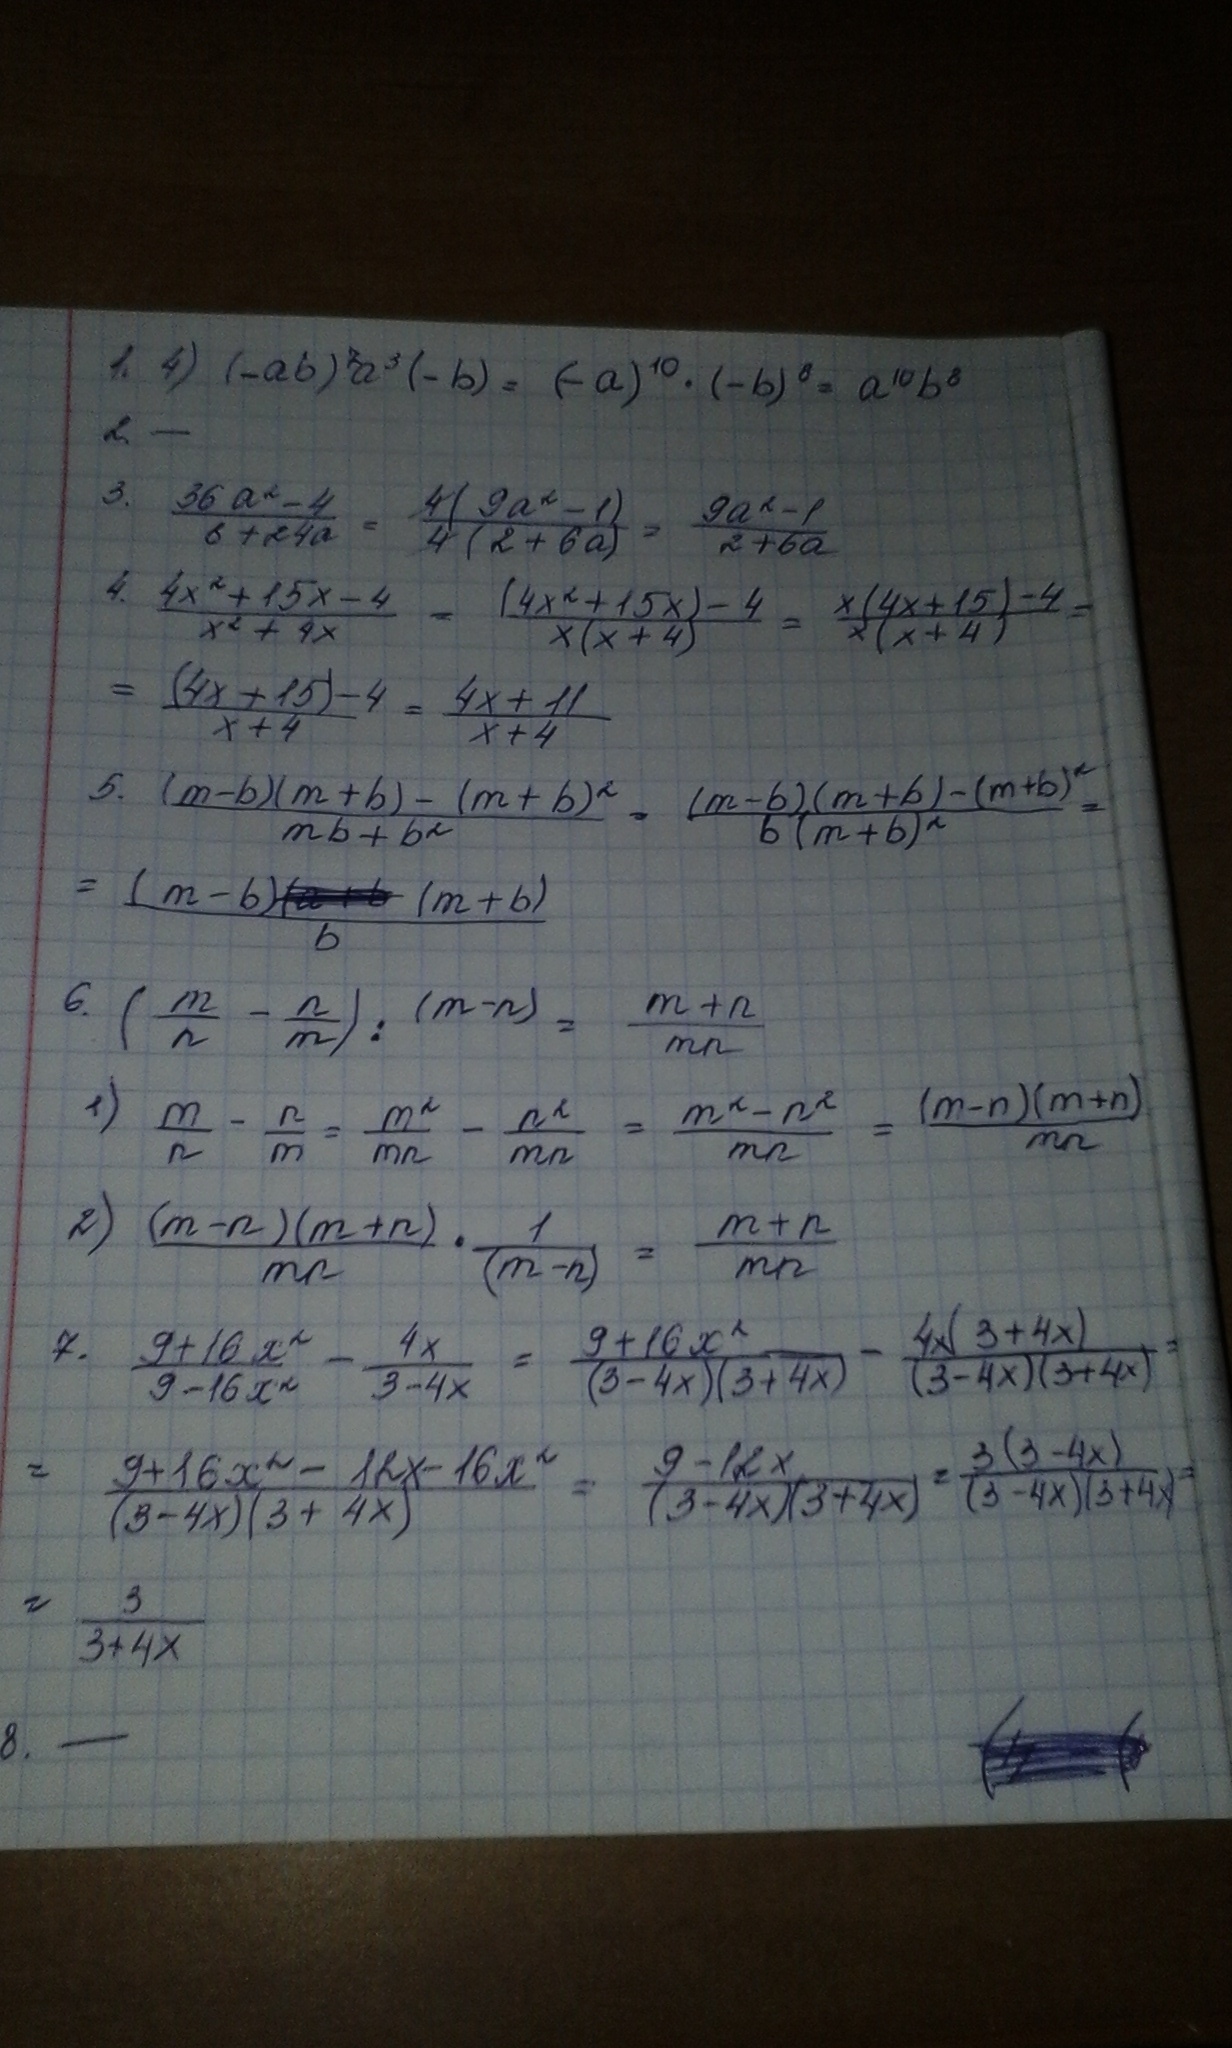 1. 4) (-ab)⁷a³(-b) = (-a)¹⁰ · (-b)⁸ = a¹⁰b⁸
2. —
3. (36a² - 4)/(8 + 24a) = (4(9a² - 1))/(4(2 + 6a)) = (9a² - 1)/(2 + 6a)
4. (4x² + 15x - 4)/(x² + 4x) = ((4x² + 15x) - 4)/(x(x + 4)) = (x(4x + 15) - 4)/(x(x + 4)) =
= ((4x + 15) - 4)/(x + 4) = (4x + 11)/(x + 4)
5. ((m - b)(m + b) - (m + b)²)/(mb + b²) = ((m - b)(m + b) - (m + b)²)/(b(m + b)²) =
= ((m - b)(m + b))/b
6. (m/n - n/m) : (m - n) = (m + n)/(mn)
1) m/n - n/m = m²/(mn) - n²/(mn) = (m² - n²)/(mn) = ((m - n)(m + n))/(mn)
2) ((m - n)(m + n))/(mn) · 1/((m - n)) = (m + n)/(mn)
7. (9 + 16x²)/(9 - 16x²) - 4x/(3 - 4x) = (9 + 16x²)/((3 - 4x)(3 + 4x)) - (4x(3 + 4x))/((3 - 4x)(3 + 4x)) =
= (9 + 16x² - 12x - 16x²)/((3 - 4x)(3 + 4x)) = (9 - 12x)/((3 - 4x)(3 + 4x)) = (3(3 - 4x))/((3 - 4x)(3 + 4x)) =
= 3/(3 + 4x)
8. —